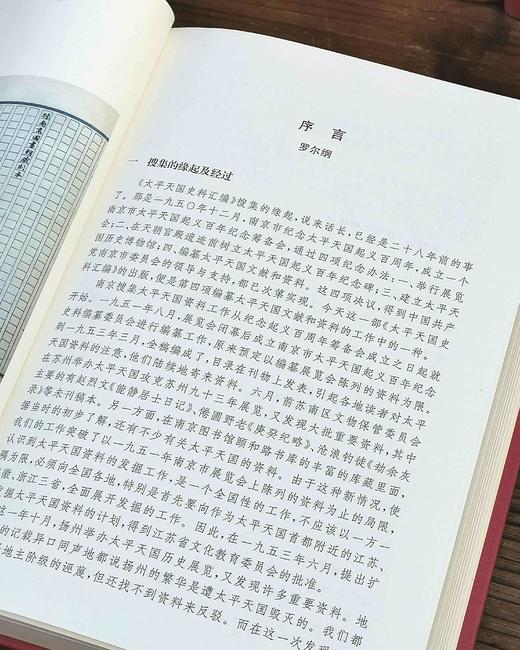 序言
罗尔纲
一 搜集的缘起及经过
《太平天国史料汇编》搜集的缘起，说来话长，已经是二十八年前的事
了。那是一九五〇年十二月，南京市纪念太平天国起义百周年，成立一个
南京市太平天国起义百周年纪念筹备会，通过四项纪念办法：一、举行展览
会；二、在天朝宫殿遗迹前树立太平天国起义百年纪念碑；三、建立太平天
国历史博物馆；四、编纂太平天国文献和资料。这四项决议，得到中国共产
党南京市委员会的领导与支持，都已次第实现。今天这一部《太平天国史
料汇编》的出版，便是第四项编纂太平天国文献和资料的工作中的一种。
南京搜集太平天国资料工作从纪念起义百周年筹备会成立之日起就
开始。一九五一年八月，展览会闭幕后成立南京市太平天国起义百年纪念
史料编纂委员会进行编纂工作，原来预定以编纂展览会陈列的资料为限。
到一九五三年三月，全稿编成了，目录在刊物上发表，引起各地读者对太平
天国资料的注意，他们陆续地寄来资料。六月，前苏南区文物保管委员会
在苏州举办太平天国攻克苏州九十三年展览，又发现大批重要资料，其中
主要的有赵烈文《能静居士日记》、倦圃野老《庚癸纪略》、沧浪钓徒《劫余灰
录》等未刊稿本。另一方面，在南京图书馆颐和路书库的丰富的库藏里面，
据当时的初步了解，还有不少有关太平天国的资料。由于这种新情况，使
我们的工作突破了以一九五一年南京市展览会上陈列的资料为止的局限，
认识到太平天国资料的发掘工作，是一个全国性的工作，不应该以一方一
隅为限，必须向全国各地，特别是首先要向作为太平天国首都附近的江苏、
徽、浙江三省，全面展开发掘的工作。因此，在一九五三年六月，提出扩
发掘太平天国资料的计划，得到江苏省文化教育委员会的批准。
这一年十月，扬州举办太平天国历史展览，又发现许多重要资料。地
的记载异口同声地都说扬州的繁华是遭太平天国毁灭的。我们都
是地主阶级的诬蔑，但还找不到资料来反驳。而在这一次发现